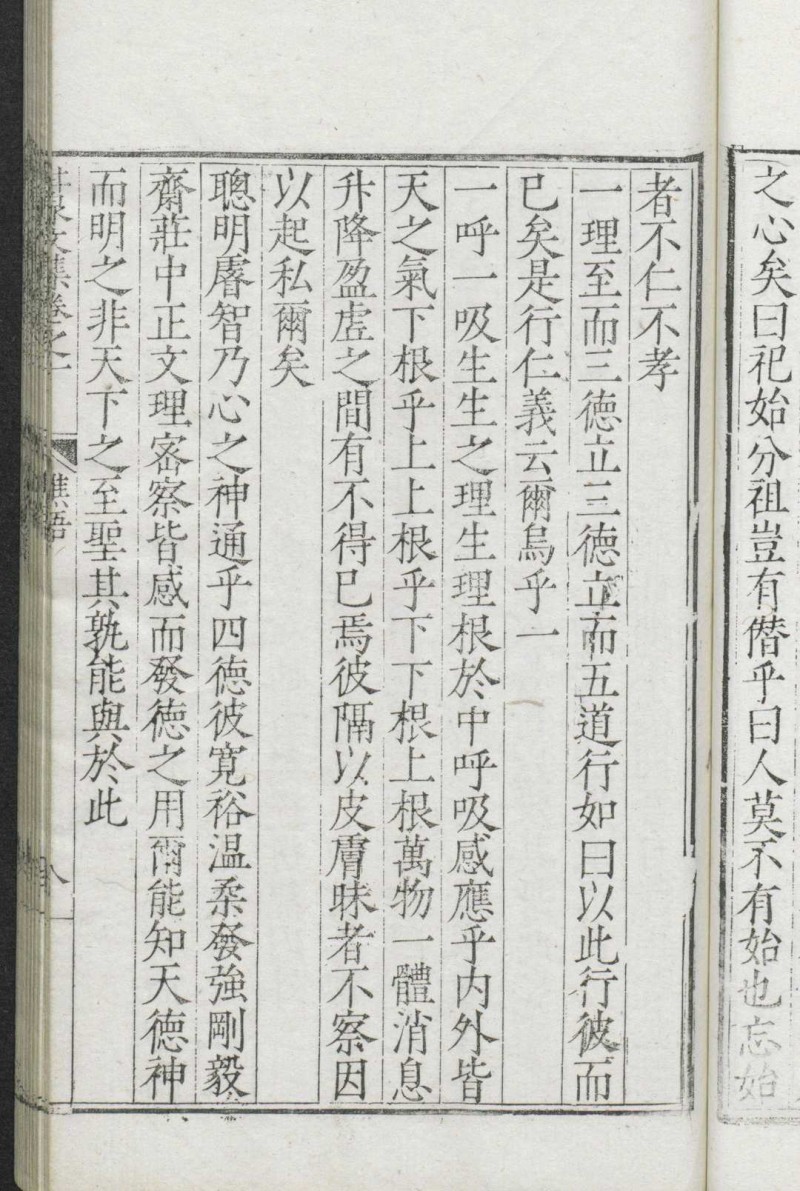 之心矣曰祀始分祖豈有僭乎曰人莫不有始也忘始
者不仁不孝
一理至而三德立三德立而五道行如曰以此行彼而
已矣是行仁義云爾烏乎一
一呼一吸生生之理生理根於中呼吸感應乎内外皆
天之氣下根乎上上根乎下下根上根萬物一體消息
升降盈虛之間有不得已焉彼隔以皮膚昧者不察因
以起私爾矣
聰明睿智乃心之神通乎四德彼寬裕溫柔發強剛毅
齋莊中正文理密察皆感而發德之用爾能知天德神
而明之非天下之至聖其孰能與於此
泉文集卷之一 樵語 八